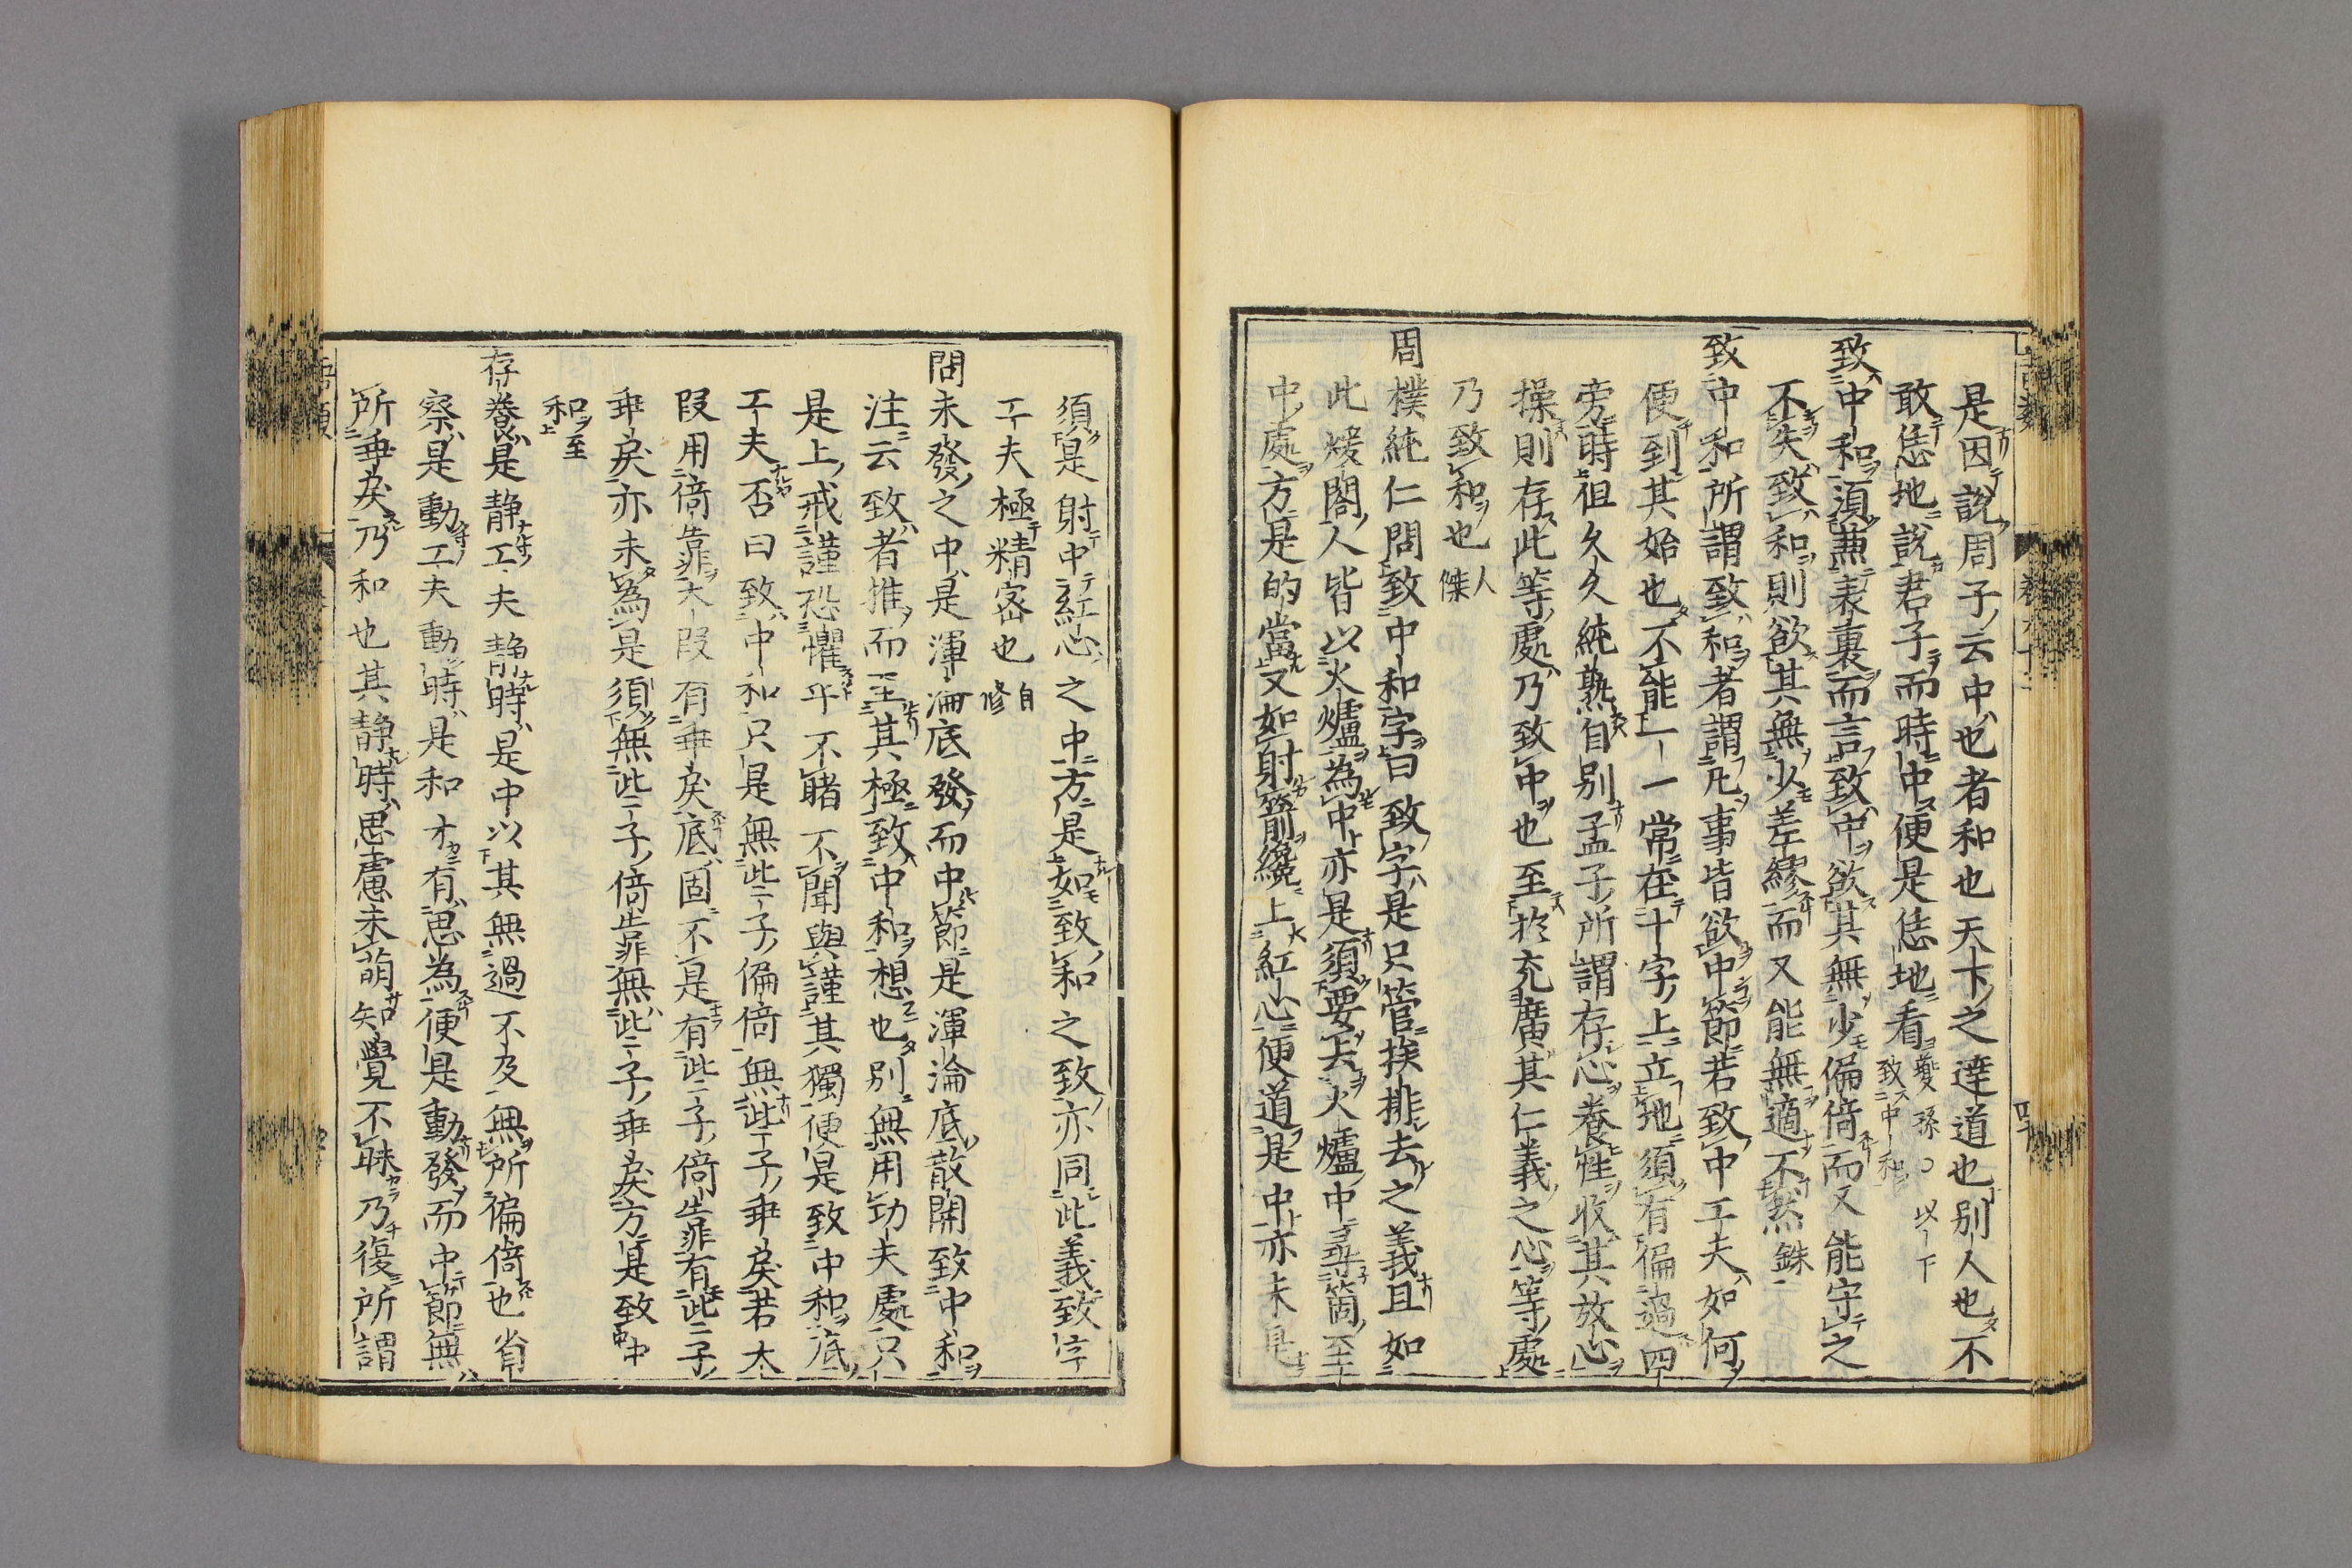 是因說周子云中也者和也天下之達道也別人也不
敢恁地說君子而時中便是恁地看夔孫〇以下
致中和
致中和須兼表裏而言致中欲其無少偏倚而又能守之
不失致和則欲其無少差繆而又能無適不然銖
致中和所謂致和者謂凡事皆欲中節若致中工夫如何
便到其始也不能一一常在十字上立地須有偏過四
旁時但久久純熟自別孟子所謂存心養性收其放心
操則存此等處乃致中也至於充廣其仁義之心等處
乃致和也人傑
周樸純仁問致中和字曰致字是只管挨排去之義且如
此煖閣人皆以火爐為中亦是須要去火爐中尋箇至
中處方是的當又如射箭纔上紅心便道是中亦未是
須是射中紅心之中方是如致和之致亦同此義致字
工夫極精密也自修
問未發之中是渾淪底發而中節是渾淪底散開致中和
注云致者推而至其極致中和想也別無用功夫處只
是上戒謹恐懼乎不睹不聞與謹其獨便是致中和底
工夫否曰致中和只是無些子偏倚無些子乖戾若大
段用倚靠大段有乖戾底固不是有些子倚靠有些子
乖戾亦未為是須無些子倚靠無些子乖戾方是致中
和至
存養是靜工夫靜時是中以其無過不及無所偏倚也省
察是動工夫動時是和才有思為便是動發而中節無
所乖戾乃和也其靜時思慮未萌知覺不昧乃復所謂